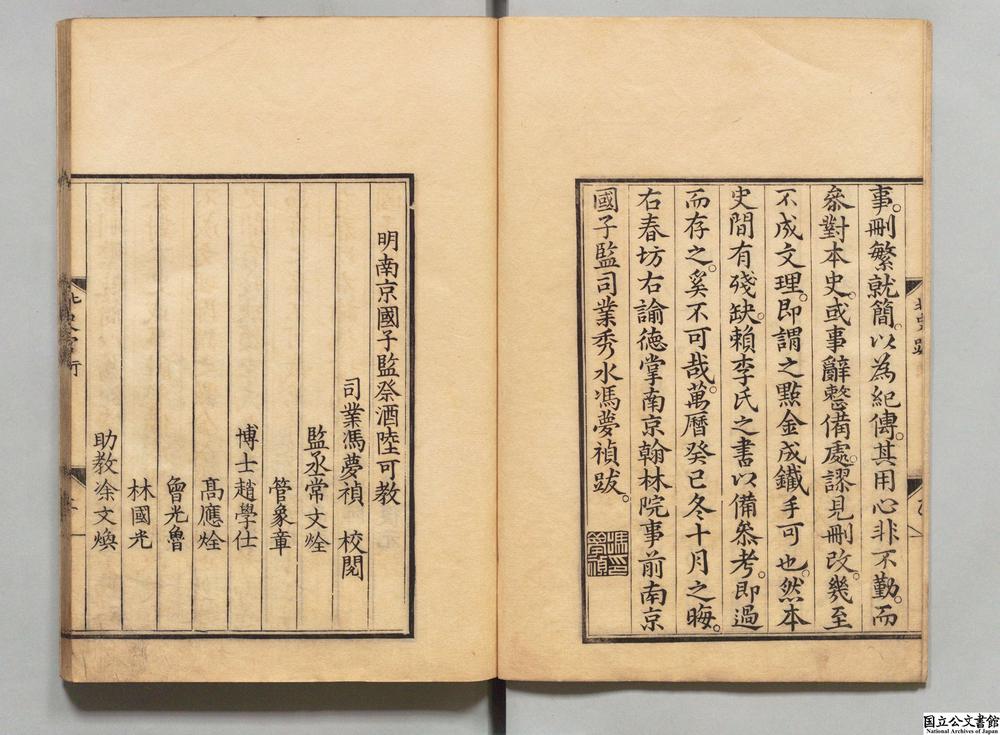 事。刪繁就簡。以為紀傳。其用心非不勤。而
叅對本史。或事辭整備處。謬見刪改。幾至
不成文理。即謂之點金成鐵手可也。然本
史間有殘缺。賴李氏之書以備叅考。即過
而存之。奚不可哉。萬曆癸巳冬十月之晦。
右春坊右諭德掌南京翰林院事前南京
國子監司業秀水馮夢禎跋。
明南京國子監祭酒陸可教
司業馮夢禎 校閱
監丞常文烇
管象章
博士趙學仕
高應烇
曾光魯
林國光
助教涂文煥
国立公文書館
National Archives of Japan